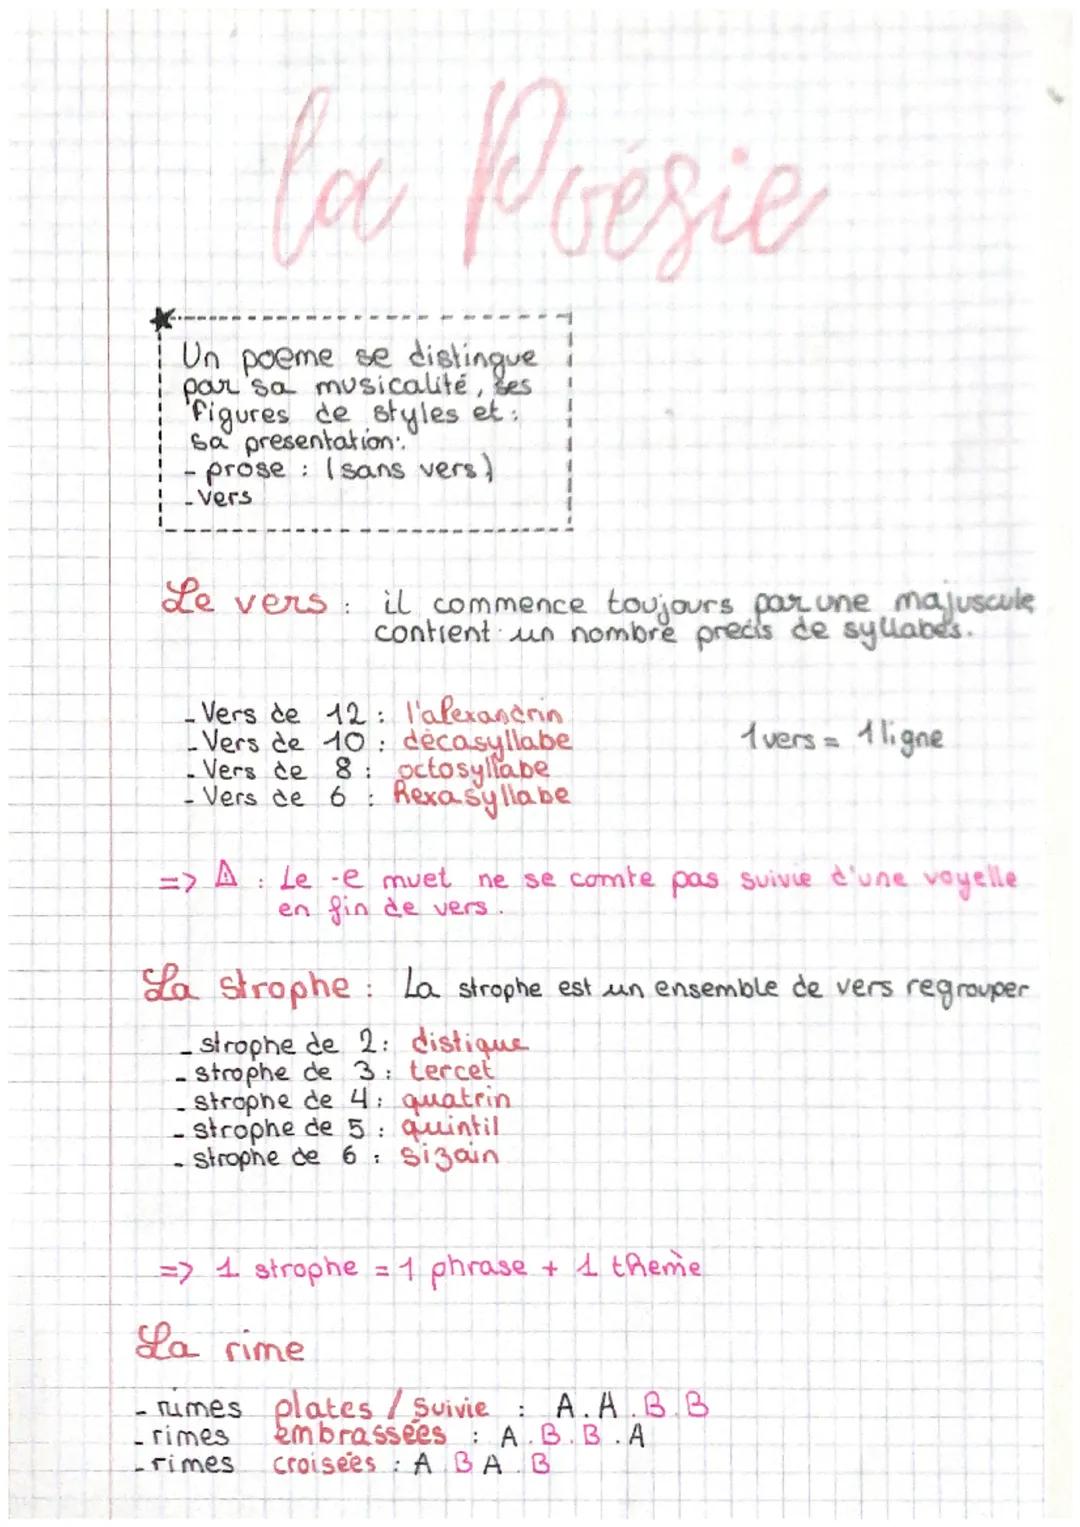 la Poésie
Un poeme se distingue
par sa musicalité, ses
figures de styles et :
sa presentation:
- prose : (sans vers)
- vers
Le vers : il commence toujours par une majuscule
contient un nombre précis de syllabes.
- Vers de 12 : l'alexandrin
- Vers de 10 : décasyllabe
- Vers de 8 : octosyllabe
- Vers de 6 : hexasyllabe
1 vers = 1 ligne
=> ⚠ : Le -e muet ne se comte pas suivie d'une voyelle
en fin de vers.
La strophe : La strophe est un ensemble de vers regrouper
- strophe de 2 : distique
- strophe de 3 : tercet
- strophe de 4 : quatrin
- strophe de 5 : quintil
- strophe de 6 : sizain
=> 1 strophe = 1 phrase + 1 thème
La rime
- rimes plates / suivie : A.A.B.B
- rimes embrassées : A.B.B.A
- rimes croisées : A B A.B